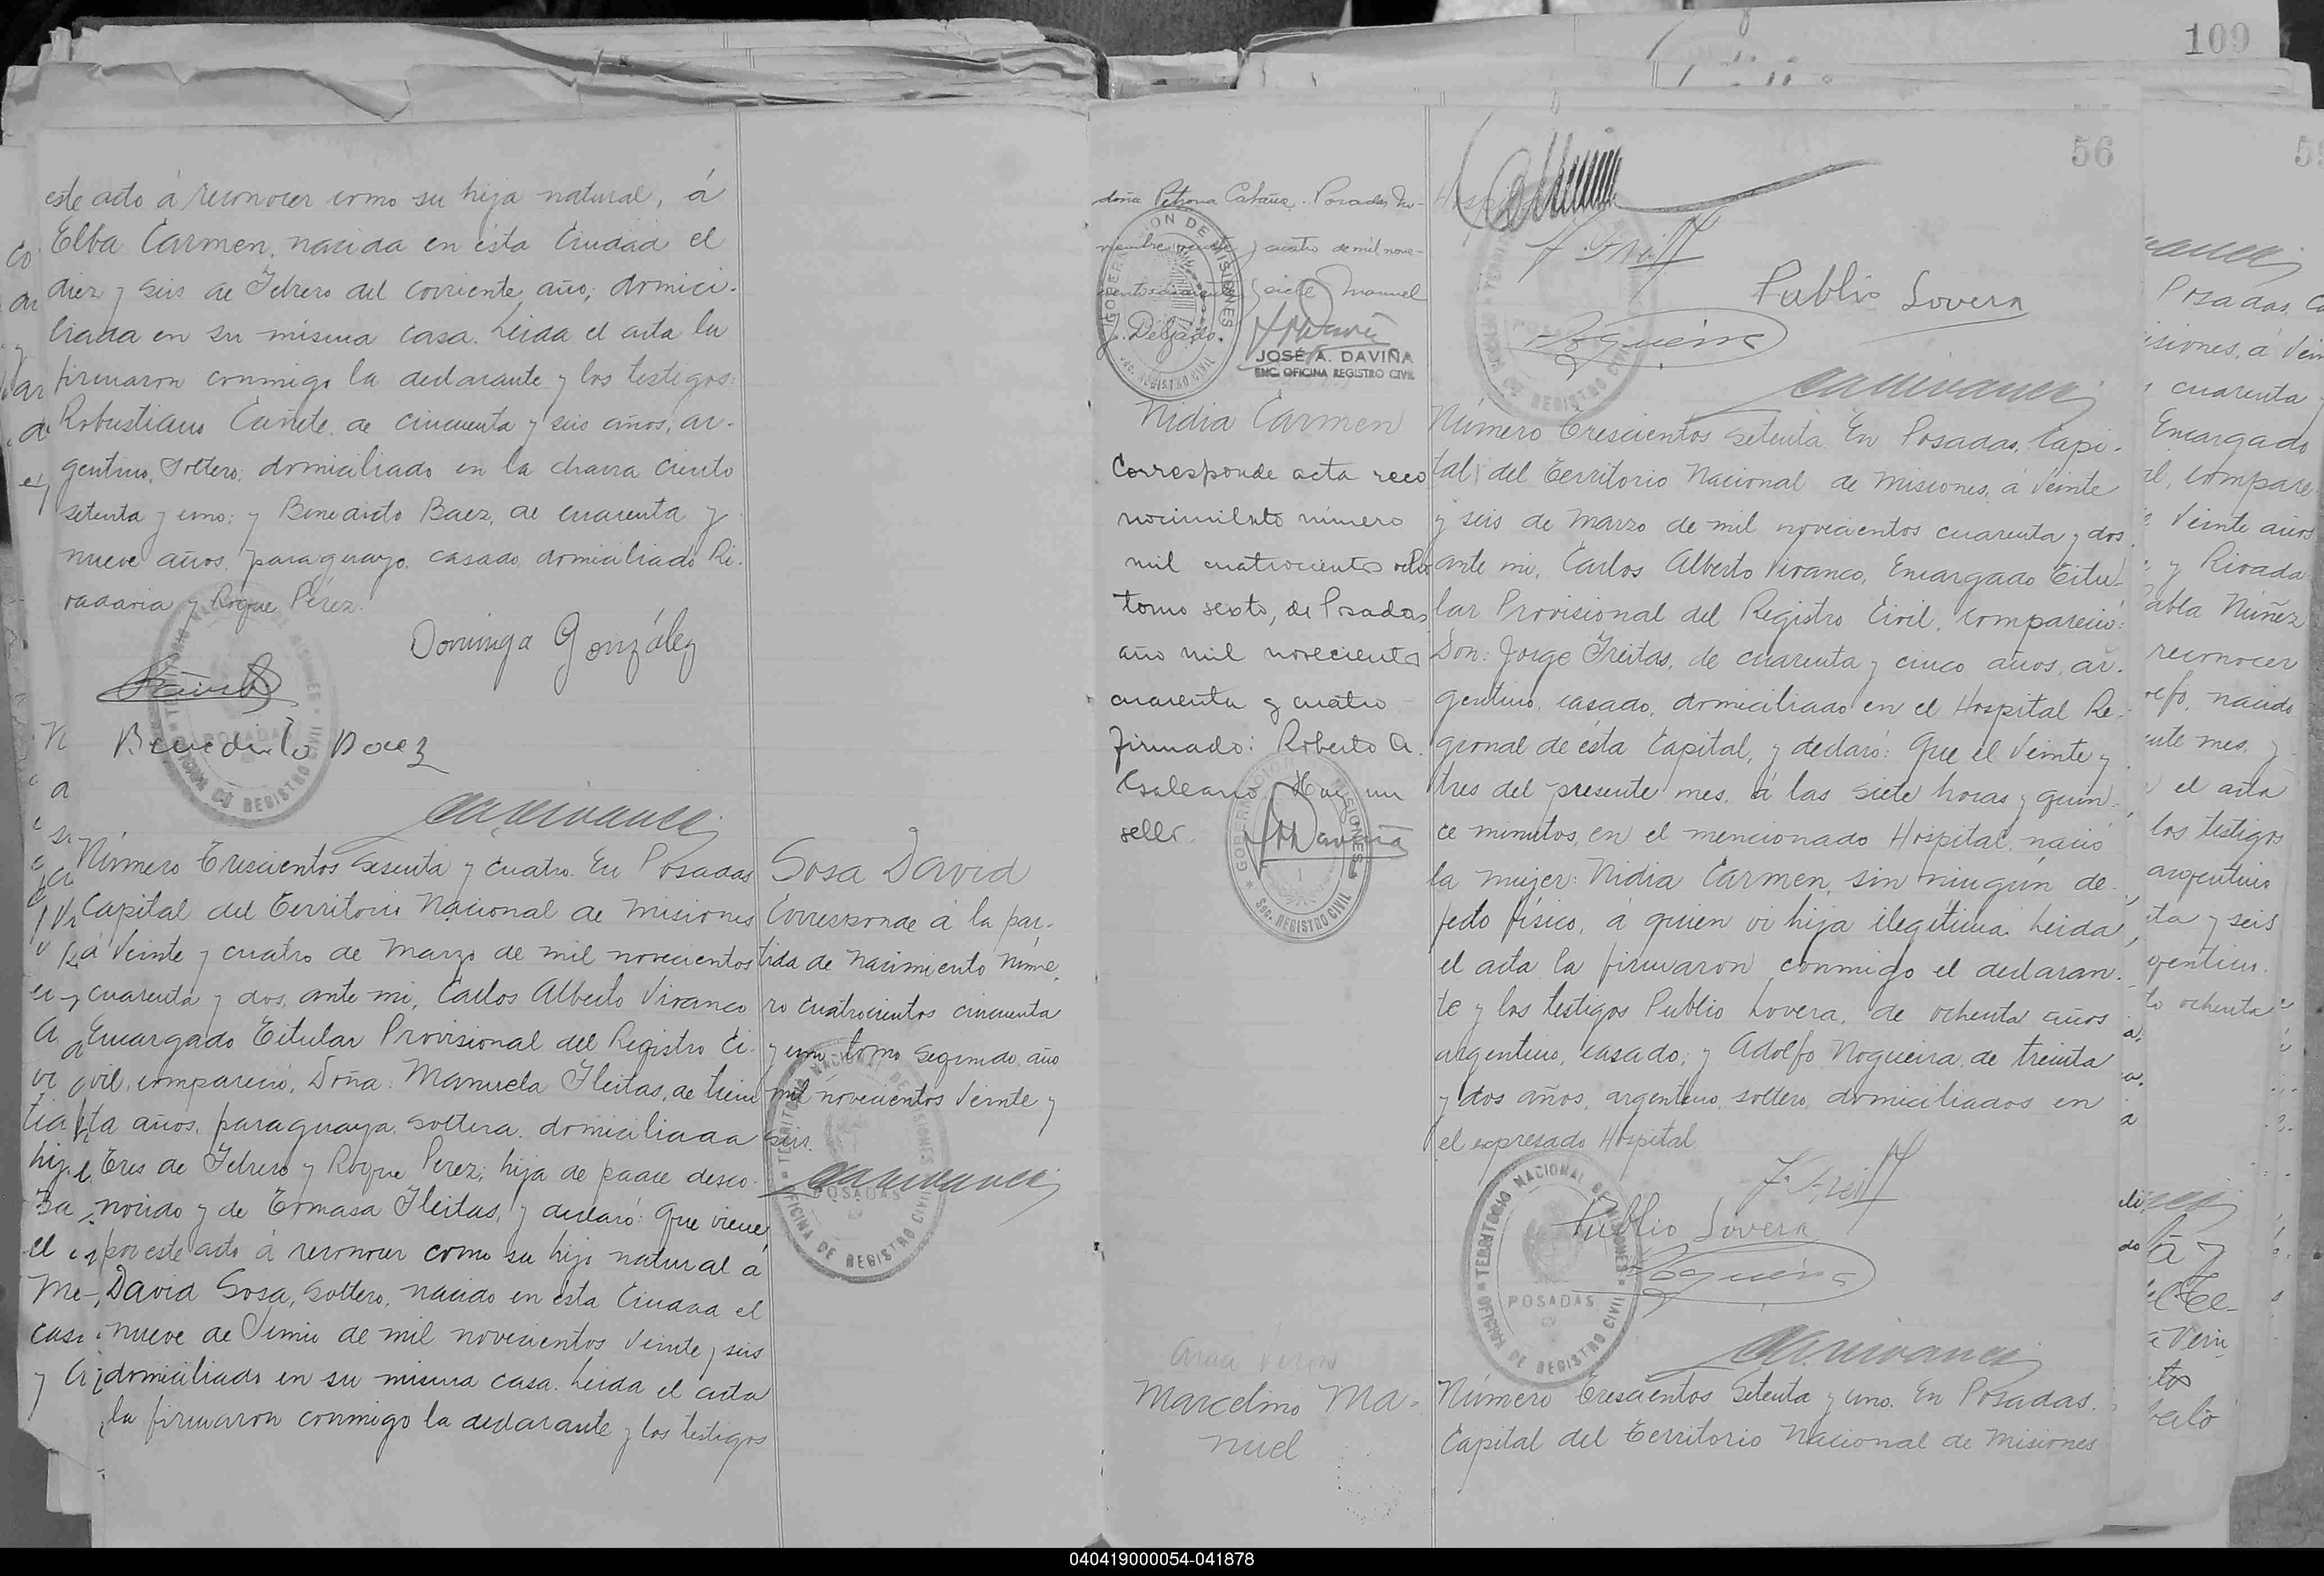 este acto á reconocer como su hija natural, á
Elba Carmen, nacida en ésta Ciudad el
diez y seis de Febrero del corriente año; domici-
liada en su misma casa. Leida el acta la
firmaron conmigo la declarante y los testigos:
Robustiano Cañete, de cincuenta y seis años, ar-
gentino, soltero, domiciliado en la chacra ciento
setenta y uno; y Benedicto Baez, de cuarenta y
nueve años, paraguayo, casado, domiciliado Ri-
vadavia y Roque Pérez.
Dominga González
Benedicto Baez
Número Trescientos sesenta y cuatro. En Posadas
Capital del Territorio Nacional de Misiones
á Veinte y cuatro de Marzo de mil novecientos
cuarenta y dos, ante mi, Carlos Alberto Vivanco
Encargado Titular Provisional del Registro Ci-
vil, compareció, Doña: Manuela Fleitas, de trein
ta años, paraguaya, soltera, domiciliada
Tres de Febrero y Roque Perez; hija de padre desco-
nocido y de Tomasa Fleitas, y declaró: Que viene
por este acto á reconocer como su hijo natural á
David Sosa, soltero, nacido en ésta Ciudad el
nueve de Junio de mil novecientos Veinte y seis
domiciliado en su misma casa. Leida el acta
la firmaron conmigo la declarante y los testigos
Sosa David
Corresponde á la par-
tida de Nacimiento Núme-
ro cuatrocientos cincuenta
y uno tomo Segundo, año
mil novecientos Veinte y
seis.
OFICINA DE REGISTRO CIVIL
TERRITORIO NACIONAL DE MISIONES
POSADAS
109
56
doña Petrona Cabaña. Posadas No-
viembre veinte y cuatro de mil nove-
cientos cuarenta y siete Manuel
J. Delgado.
GOBERNACION DE MISIONES
Sec. REGISTRO CIVIL
JOSÉ A. DAVIÑA
ENC. OFICINA REGISTRO CIVIL
Nidia Carmen
Corresponde acta reco
nocimiento número
mil cuatrocientos ocho
tomo sexto, de Posadas
año mil novecientos
cuarenta y cuatro
firmado: Roberto A.
Galeano Hay un
sello.
GOBERNACION DE MISIONES
Sec. REGISTRO CIVIL
Marcelino Ma-
nuel
Publio Lovera
Número Trescientos setenta. En Posadas, Capi-
tal del Territorio Nacional de Misiones, a Veinte
y seis de Marzo de mil novecientos cuarenta y dos
ante mi, Carlos Alberto Vivanco, Encargado Titu-
lar Provisional del Registro Civil, compareció:
Don: Jorge Freitas, de cuarenta y cinco años, ar-
gentino, casado, domiciliado en el Hospital Re-
gional de ésta Capital, y declaró: Que el Veinte y
tres del presente mes, á las siete horas y quin-
ce minutos, en el mencionado Hospital, nació
la mujer: Nidia Carmen, sin ningún de-
fecto físico, á quien vi hija ilegítima. Leida
el acta la firmaron conmigo el declaran-
te y los testigos Publio Lovera, de ochenta años
argentino, casado; y Adolfo Nogueira, de treinta
y dos años, argentino, soltero, domiciliados en
el expresado Hospital
Publio Lovera
OFICINA DE REGISTRO CIVIL
TERRITORIO NACIONAL DE MISIONES
POSADAS
Número Trescientos Setenta y uno. En Posadas.
Capital del Territorio Nacional de Misiones
Posadas, Ca
isiones, á Vein
cuarenta
Encargado
il, compare
Veinte años
y Rivada
Pabla Nuñez
reconocer
nacido
ente mes, y
el acta
los testigos
argentino
ta y seis
gentino.
to ochenta
040419000054-041878